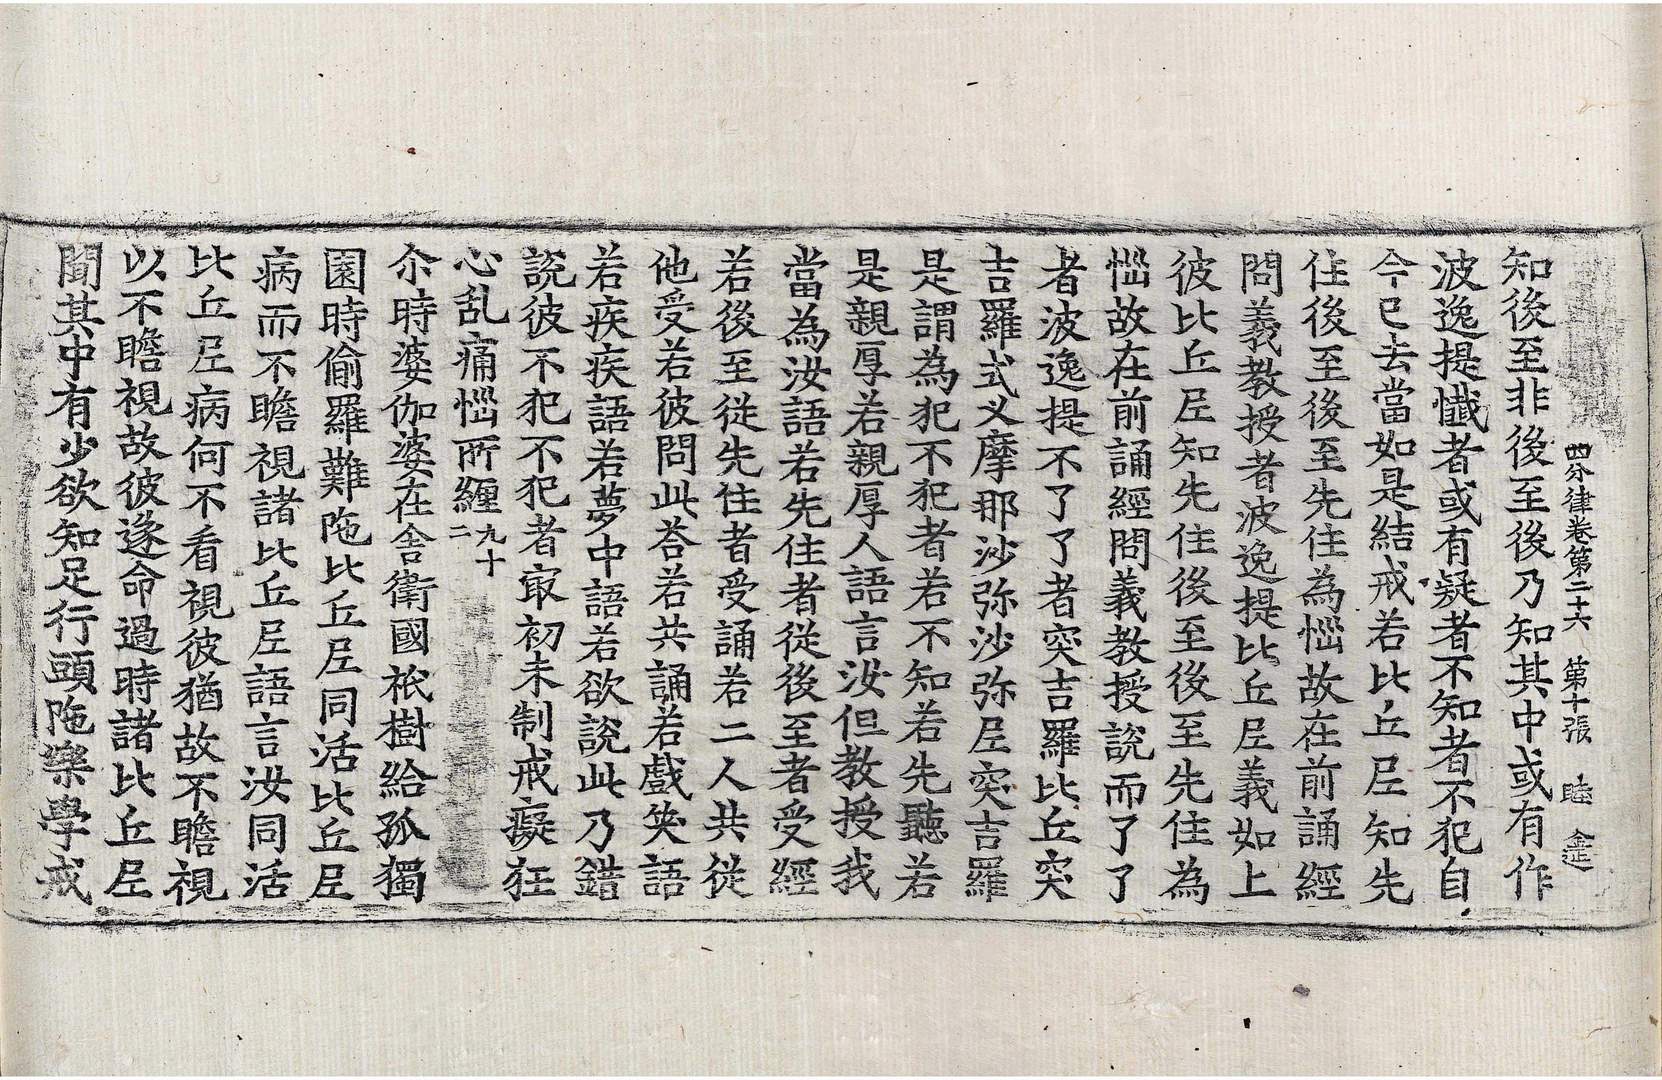 四分律卷第二十六 第十張 睦
知後至非後至後乃知其中或有作
波逸提懺者或有疑者不知者不犯自
今已去當如是結戒若比丘尼知先
住後至後至先住為惱故在前誦經
問義教授者波逸提比丘尼義如上
彼比丘尼知先住後至後至先住為
惱故在前誦經問義教授說而了了
者波逸提不了了者突吉羅比丘突
吉羅式叉摩那沙弥沙弥尼突吉羅
是謂為犯不犯者若不知若先聽若
是親厚若親厚人語言汝但教授我
當為汝語若先住者從後至者受經
若後至從先住者受誦若二人共從
他受若彼問此荅若共誦若戲笑語
若疾疾語若夢中語若欲說此乃錯
說彼不犯不犯者㝡初未制戒癡狂
心乱痛惱所纏九十二
尒時婆伽婆在舍衛國祇樹給孤獨
園時偷羅難陁比丘尼同活比丘尼
病而不瞻視諸比丘尼語言汝同活
比丘尼病何不看視彼猶故不瞻視
以不瞻視故彼遂命過時諸比丘尼
聞其中有少欲知足行頭陁樂學戒